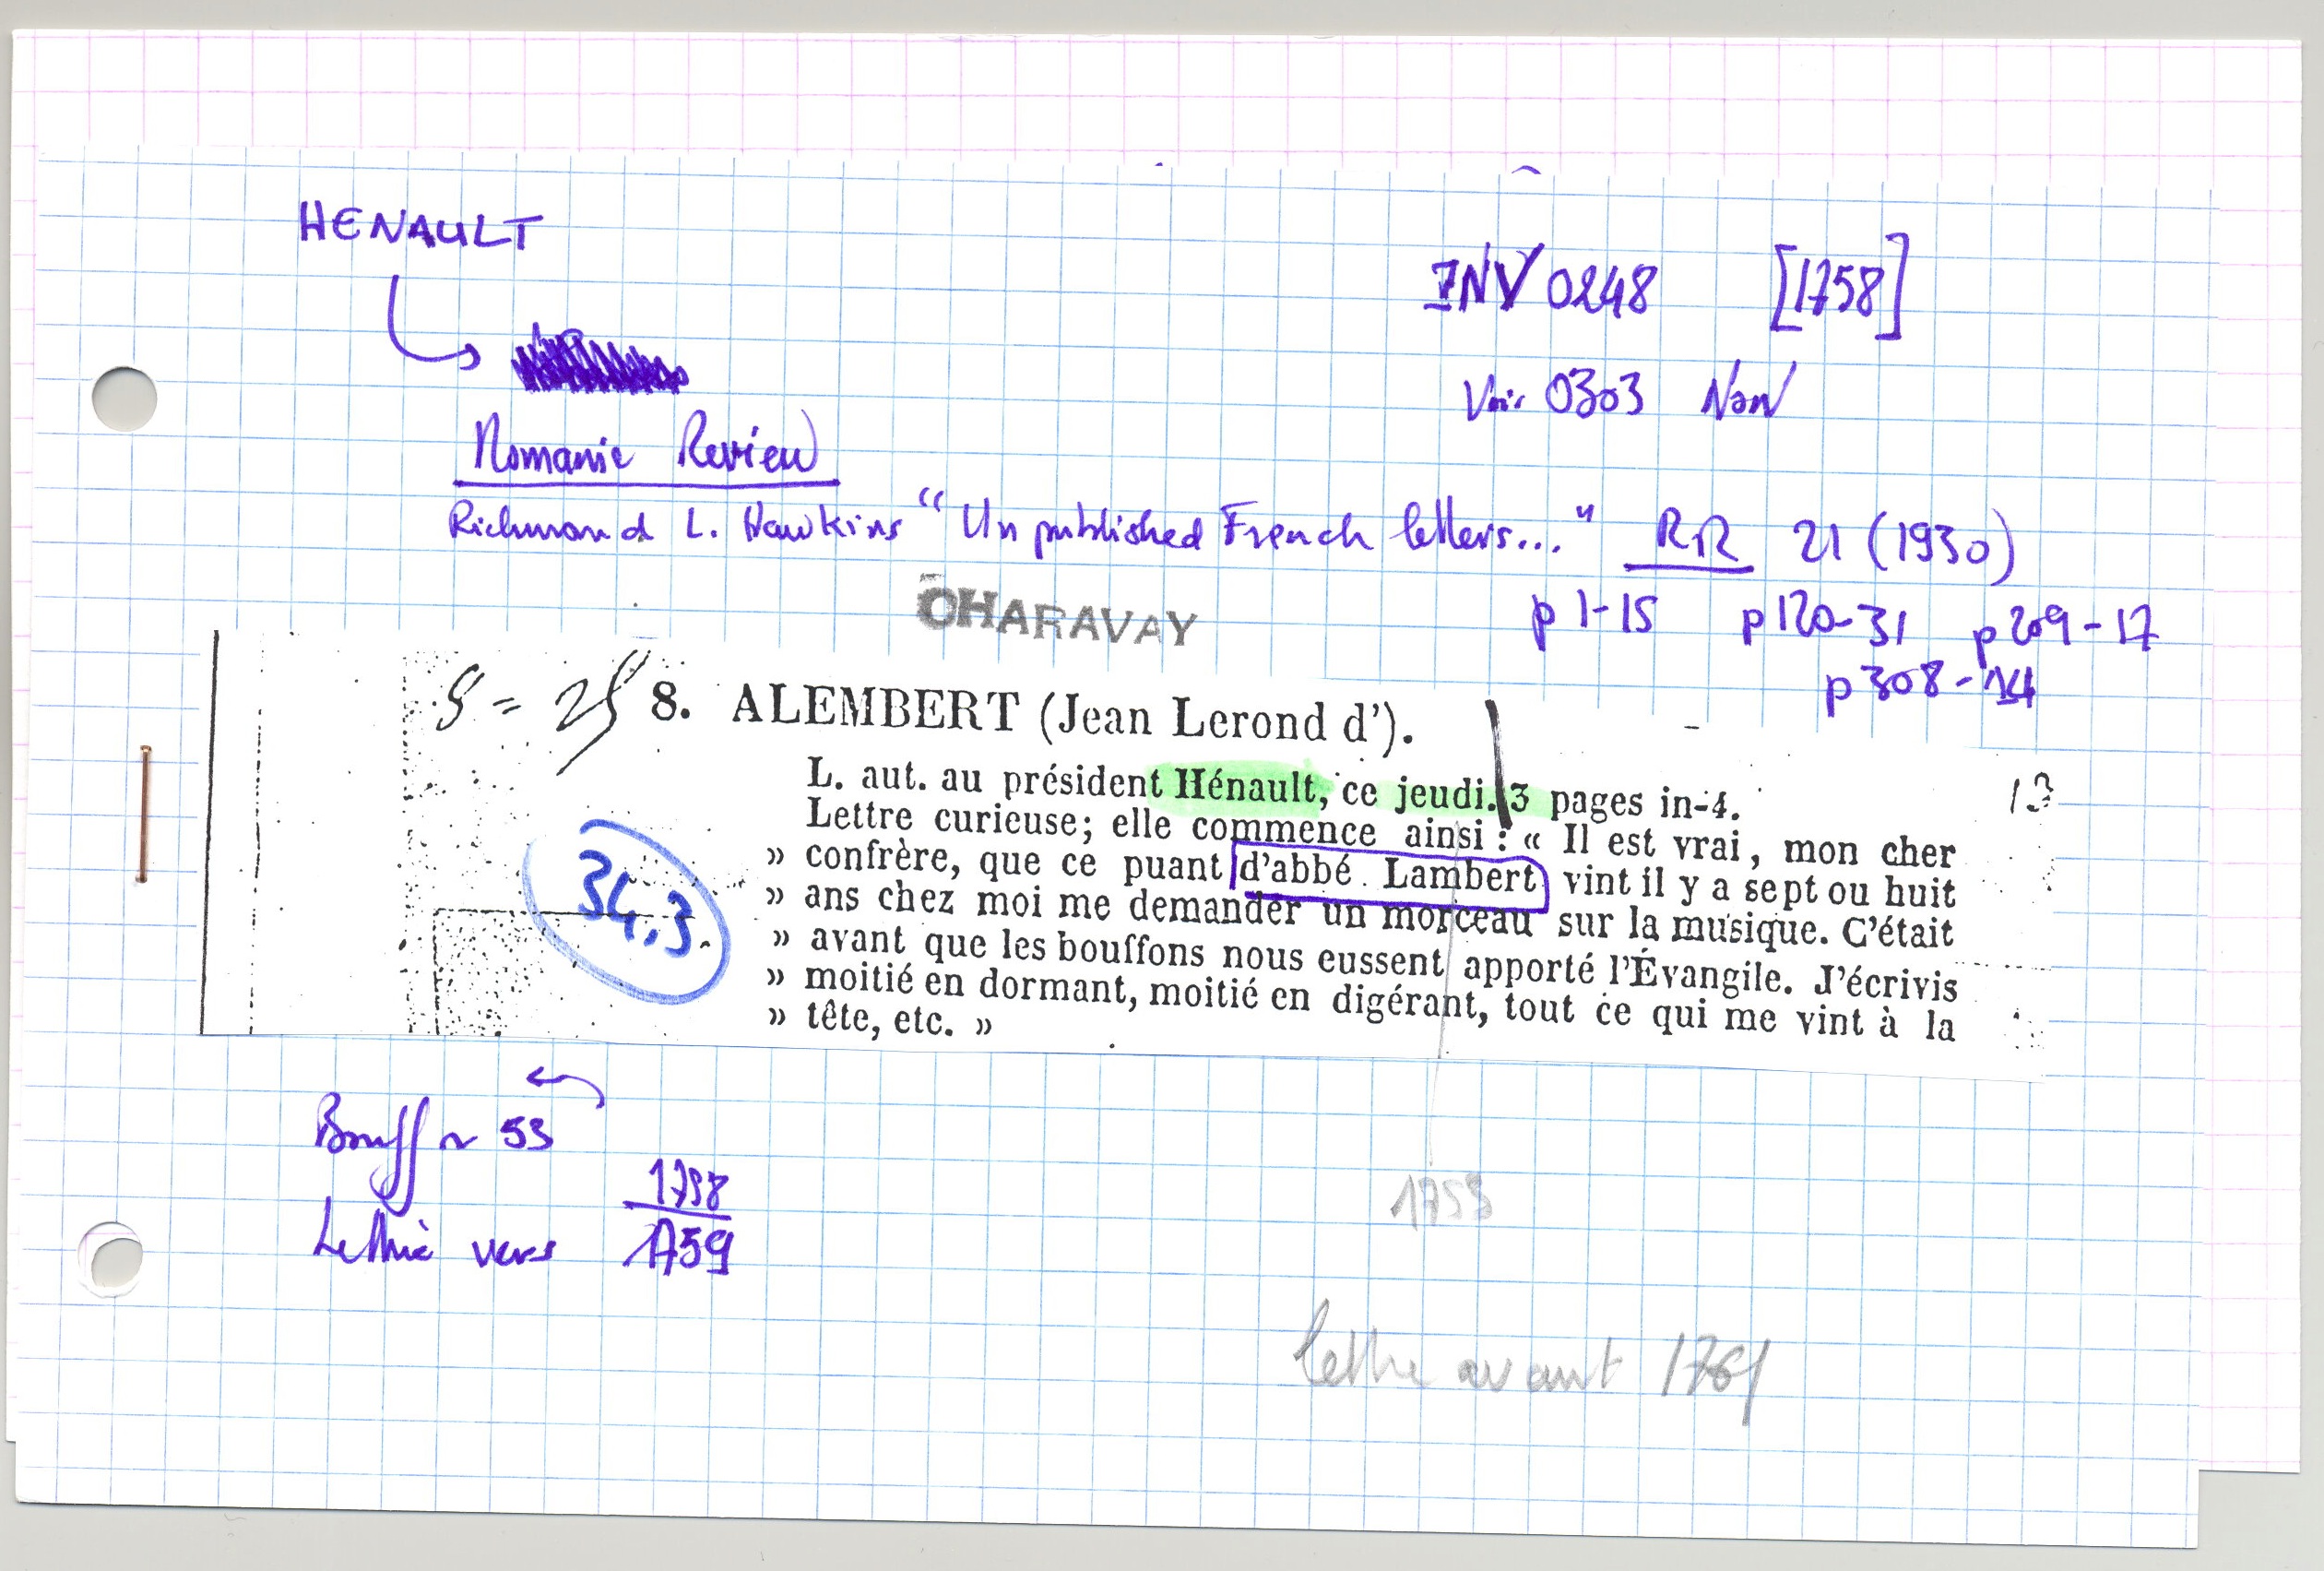 HENAULT
INV 0248 [1758]
Voir 0303 Non
Romanic Review
Richmond L. Hawkins "Unpublished French letters..." RR 21 (1930)
p 1-15 p 120-31 p 209-17
p 308-14
CHARAVAY
8. ALEMBERT (Jean Lerond d').
L. aut. au président Hénault, ce jeudi. 3 pages in-4.
Lettre curieuse; elle commence ainsi : « Il est vrai, mon cher
» confrère, que ce puant d'abbé Lambert vint il y a sept ou huit
» ans chez moi me demander un morceau sur la musique. C'était
» avant que les bouffons nous eussent apporté l'Évangile. J'écrivis
» moitié en dormant, moitié en digérant, tout ce qui me vint à la
» tête, etc. »
34.3
Bouff ~ 53
1758
vers 1759
1753
lettre avant 1761